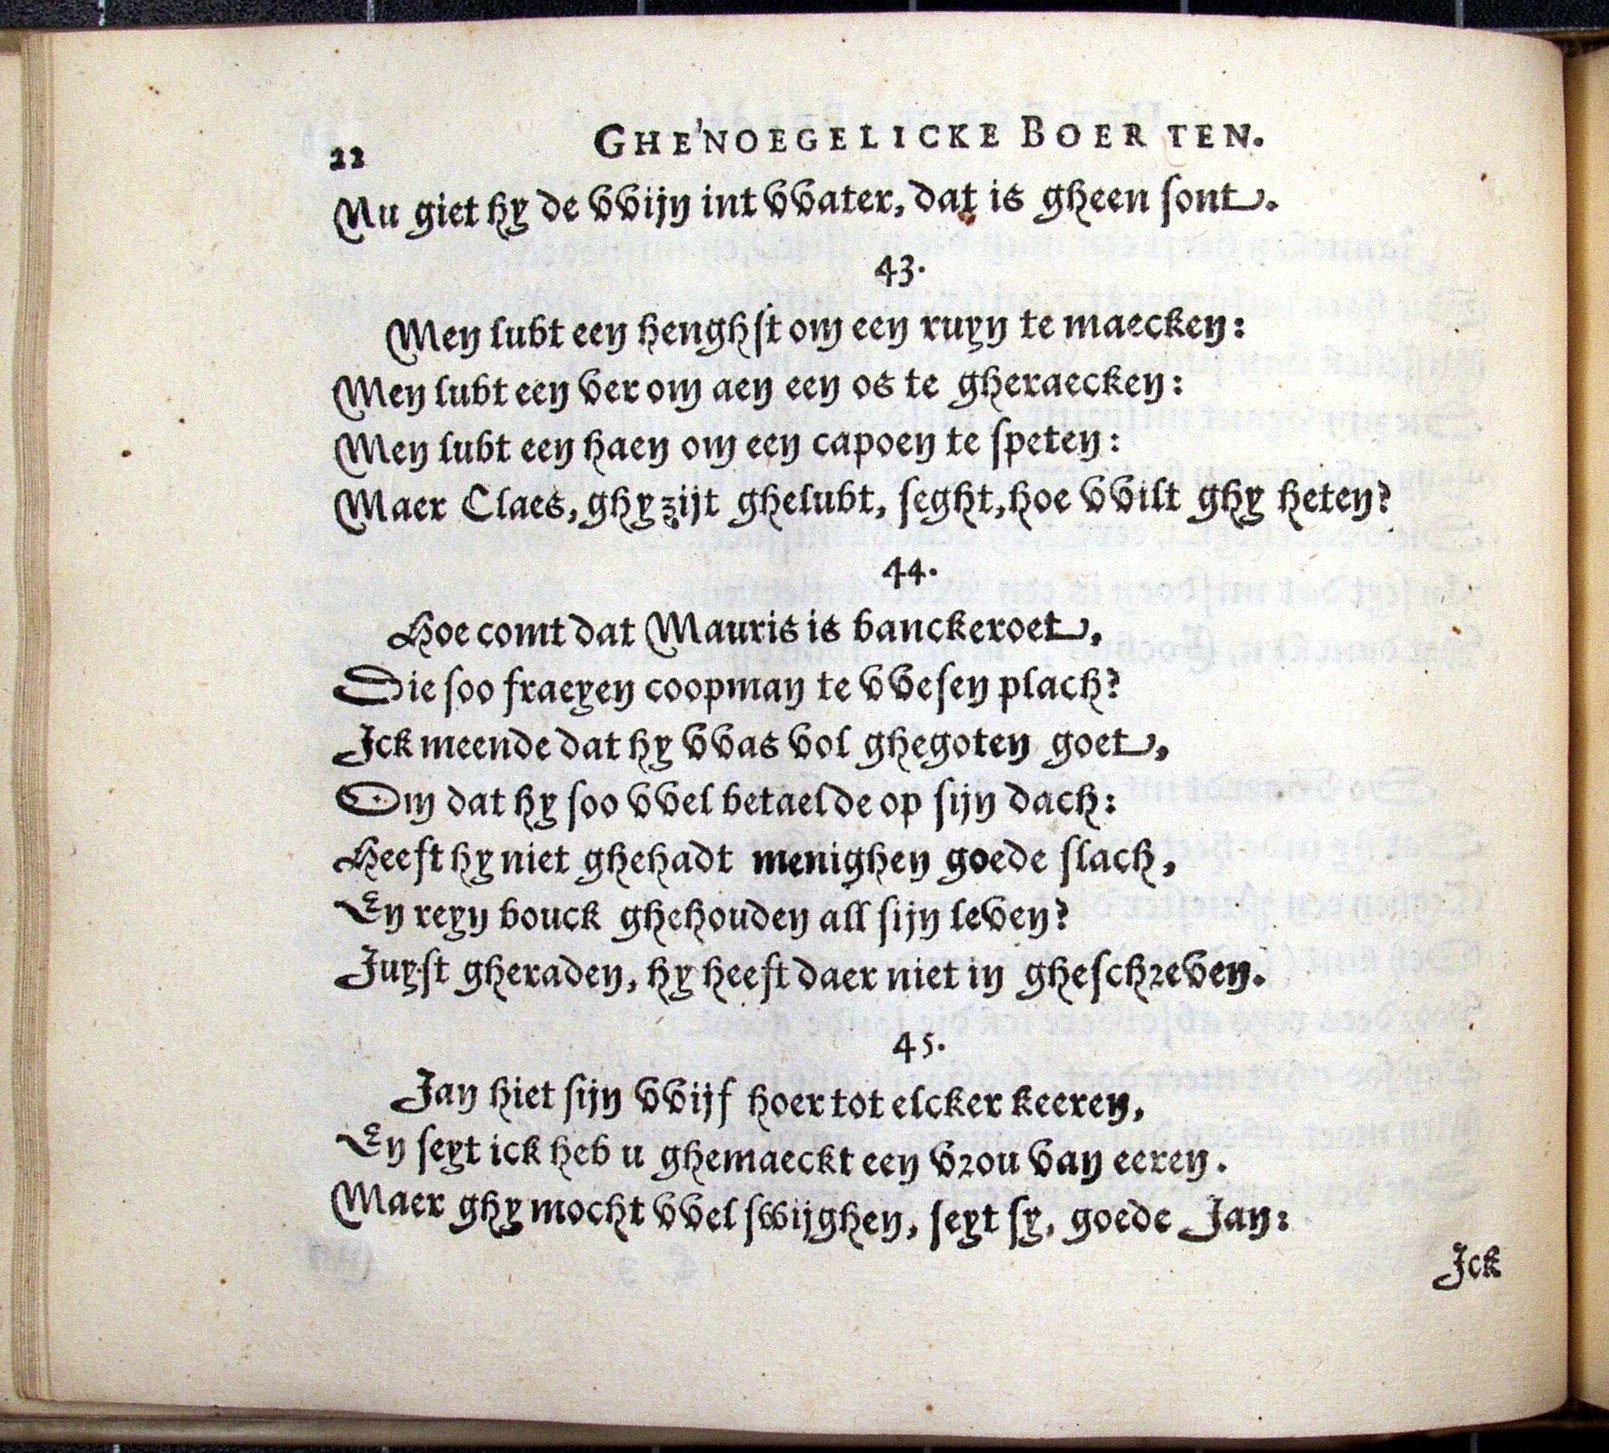 22 GHE'NOEGELICKE BOERTEN.
Nu giet hy de vvijn int vvater, dat is gheen sont.
43.
Men lubt een henghst om een ruyn te maecken:
Men lubt een ver om aen een os te gheraecken:
Men lubt een haen om een capoen te speten:
Maer Claes, ghy zijt ghelubt, seght, hoe vvilt ghy heten?
44.
Hoe comt dat Mauris is banckeroet,
Die soo fraeyen coopman te vvesen plach?
Ick meende dat hy vvas vol ghegoten goet,
Om dat hy soo vvel betaelde op sijn dach:
Heeft hy niet ghehadt menighen goede slach,
En reyn bouck ghehouden all sijn leven?
Juyst gheraden, hy heeft daer niet in gheschreven.
45.
Jan hiet sijn vvijf hoer tot elcker keeren,
En seyt ick heb u ghemaeckt een vrou van eeren.
Maer ghy mocht vvel swijghen, seyt sy, goede Jan:
Ick